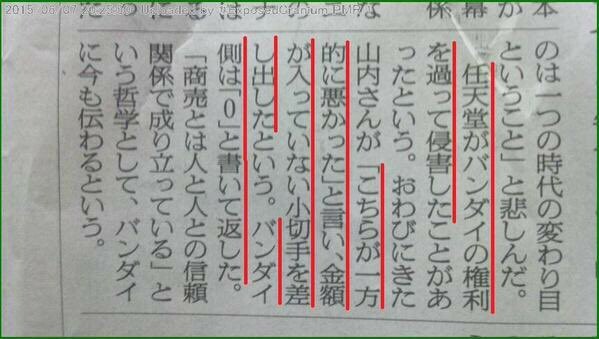 Uploaded by @ExposedCranium
のは一つの時代の変わり目
ということ」と悲しんだ。
任天堂がバンダイの権利
を過って侵害したことがあ
ったという。おわびにきた
山内さんが「こちらが一方
的に悪かった」と言い、金額
が入っていない小切手を差
し出したという。バンダイ
側は「0」と書いて返した。
「商売とは人と人との信頼
関係で成り立っている」と
いう哲学として、バンダイ
に今も伝わるという。